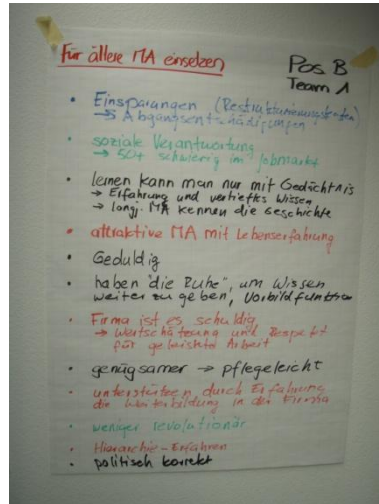 Für ältere MA einsetzen
Pos B
Team 1
• Einsparungen (Restrukturierungskosten)
→ Abgangsentschädigungen
• soziale Verantwortung
→ 50+ schwierig im Jobmarkt
• lernen kann man nur mit Gedächtnis
→ Erfahrung und vertieftes Wissen
→ langj. MA kennen die Geschichte
• attraktive MA mit Lebenserfahrung
• Geduldig
• haben "die Ruhe", um Wissen
weiter zu geben, Vorbildfunktion
• Firma ist es schuldig
→ Wertschätzung und Respekt
für geleistete Arbeit
• genügsamer → pflegeleicht
• unterstützen durch Erfahrung
die Weiterbildung in der Firma
• weniger revolutionär
• Hierarchie-Erfahren
• politisch korrekt